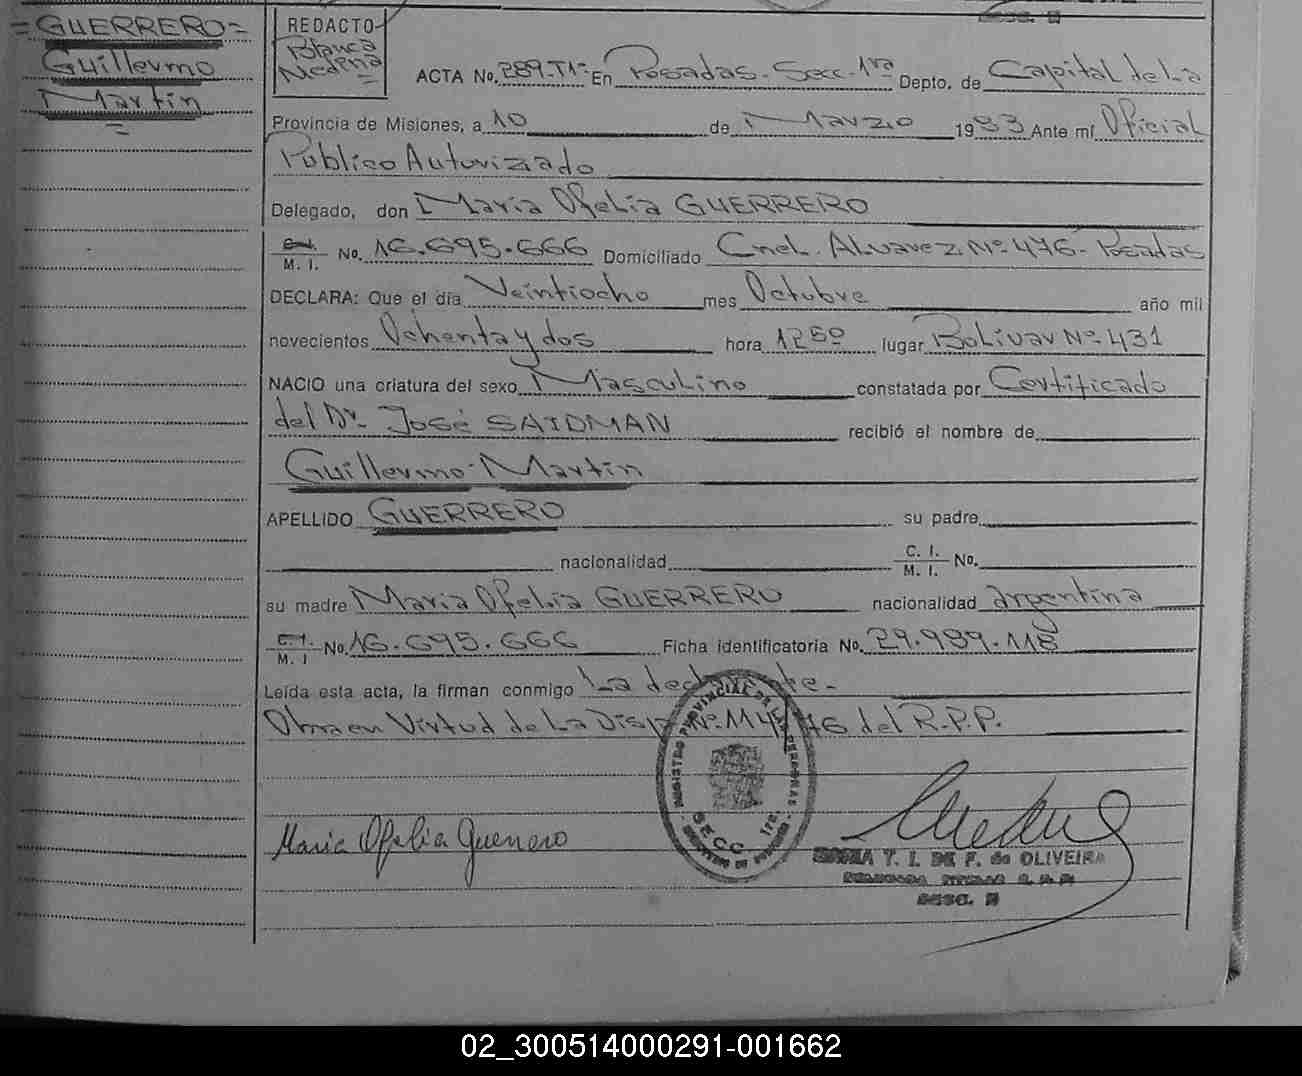 =GUERRERO=
Guillermo
Martín
REDACTO
Blanca
Medina
ACTA No. 289-T1- En Posadas. Secc. 1ra Depto. de Capital de La
Provincia de Misiones, a 10 de Marzo 1983 Ante mí Oficial
Público Autorizado
Delegado, don María Ofelia GUERRERO
C.I. M. I. No. 16.695.666 Domiciliado Cnel. Alvarez Nº 476- Posadas
DECLARA: Que el día Veintiocho mes Octubre año mil
novecientos Ochenta y dos hora 12⁵⁰ lugar Bolívar Nº 431
NACIO una criatura del sexo Masculino constatada por Certificado
del Dr. José SAIDMAN recibió el nombre de
Guillermo Martín
APELLIDO GUERRERO su padre
nacionalidad C. I. M. I. No.
su madre María Ofelia GUERRERO nacionalidad argentina
C.I. M. I No. 16.695.666 Ficha identificatoria No. 29.989.118
Leída esta acta, la firman conmigo La declarante.
Obra en Virtud de La Disp. Nº 114/76 del R.P.P.
REGISTRO PROVINCIAL DE LAS PERSONAS
SECC. 1ra.
Maria Ofelia Guerrero
MARIA T. I. DE F. de OLIVEIRA
02_300514000291-001662